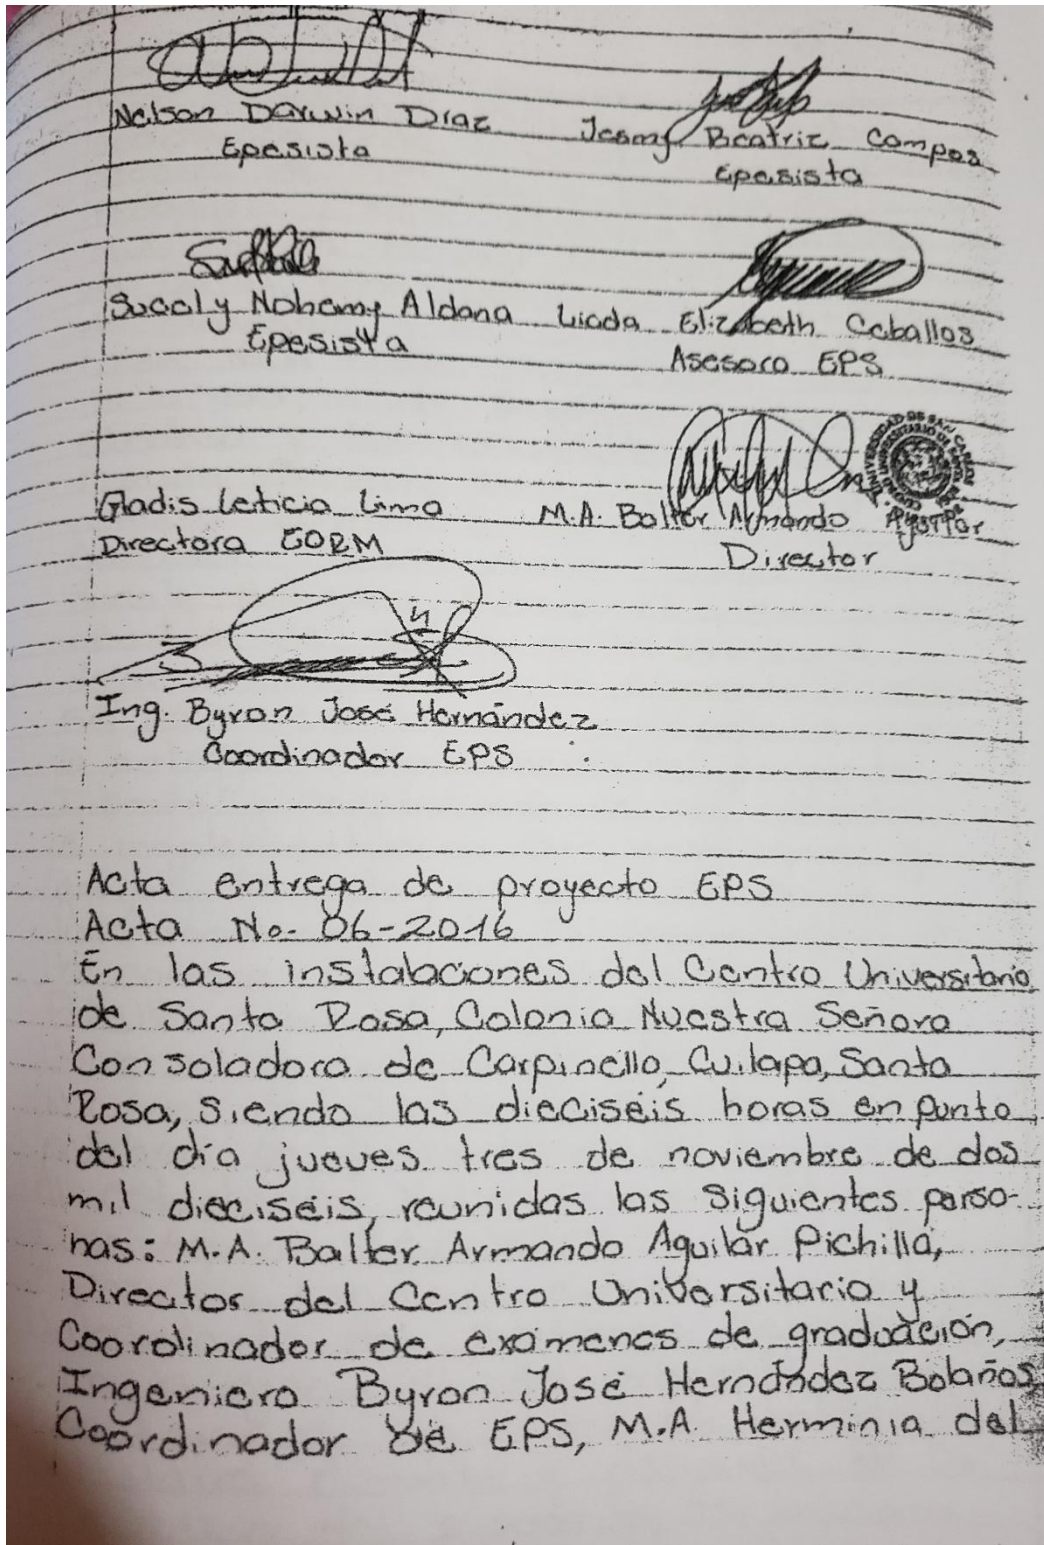 Nelson Darwin Diaz
Epesista
Jesmy Beatriz Campos
Epesista
Succly Nohemy Aldana
Epesista
Licda Elizabeth Ceballos
Asesora EPS
Gladis Leticia Lima
Directora EORM
M.A. Balter Armando Aguilar
Director
UNIVERSIDAD DE SAN CARLOS
Ing. Byron José Hernández
Coordinador EPS
Acta entrega de proyecto EPS
Acta No. 06-2016
En las instalaciones del Centro Universitario
de Santa Rosa, Colonia Nuestra Señora
Consoladora de Carpinello, Cuilapa, Santa
Rosa, siendo las dieciseis horas en punto
del día jueves tres de noviembre de dos
mil dieciséis, reunidas las siguientes perso-
nas: M.A. Balter Armando Aguilar Pichillá,
Director del Centro Universitario y
Coordinador de exámenes de graduación,
Ingeniero Byron José Hernández Bolaños
Coordinador de EPS, M.A. Herminia del